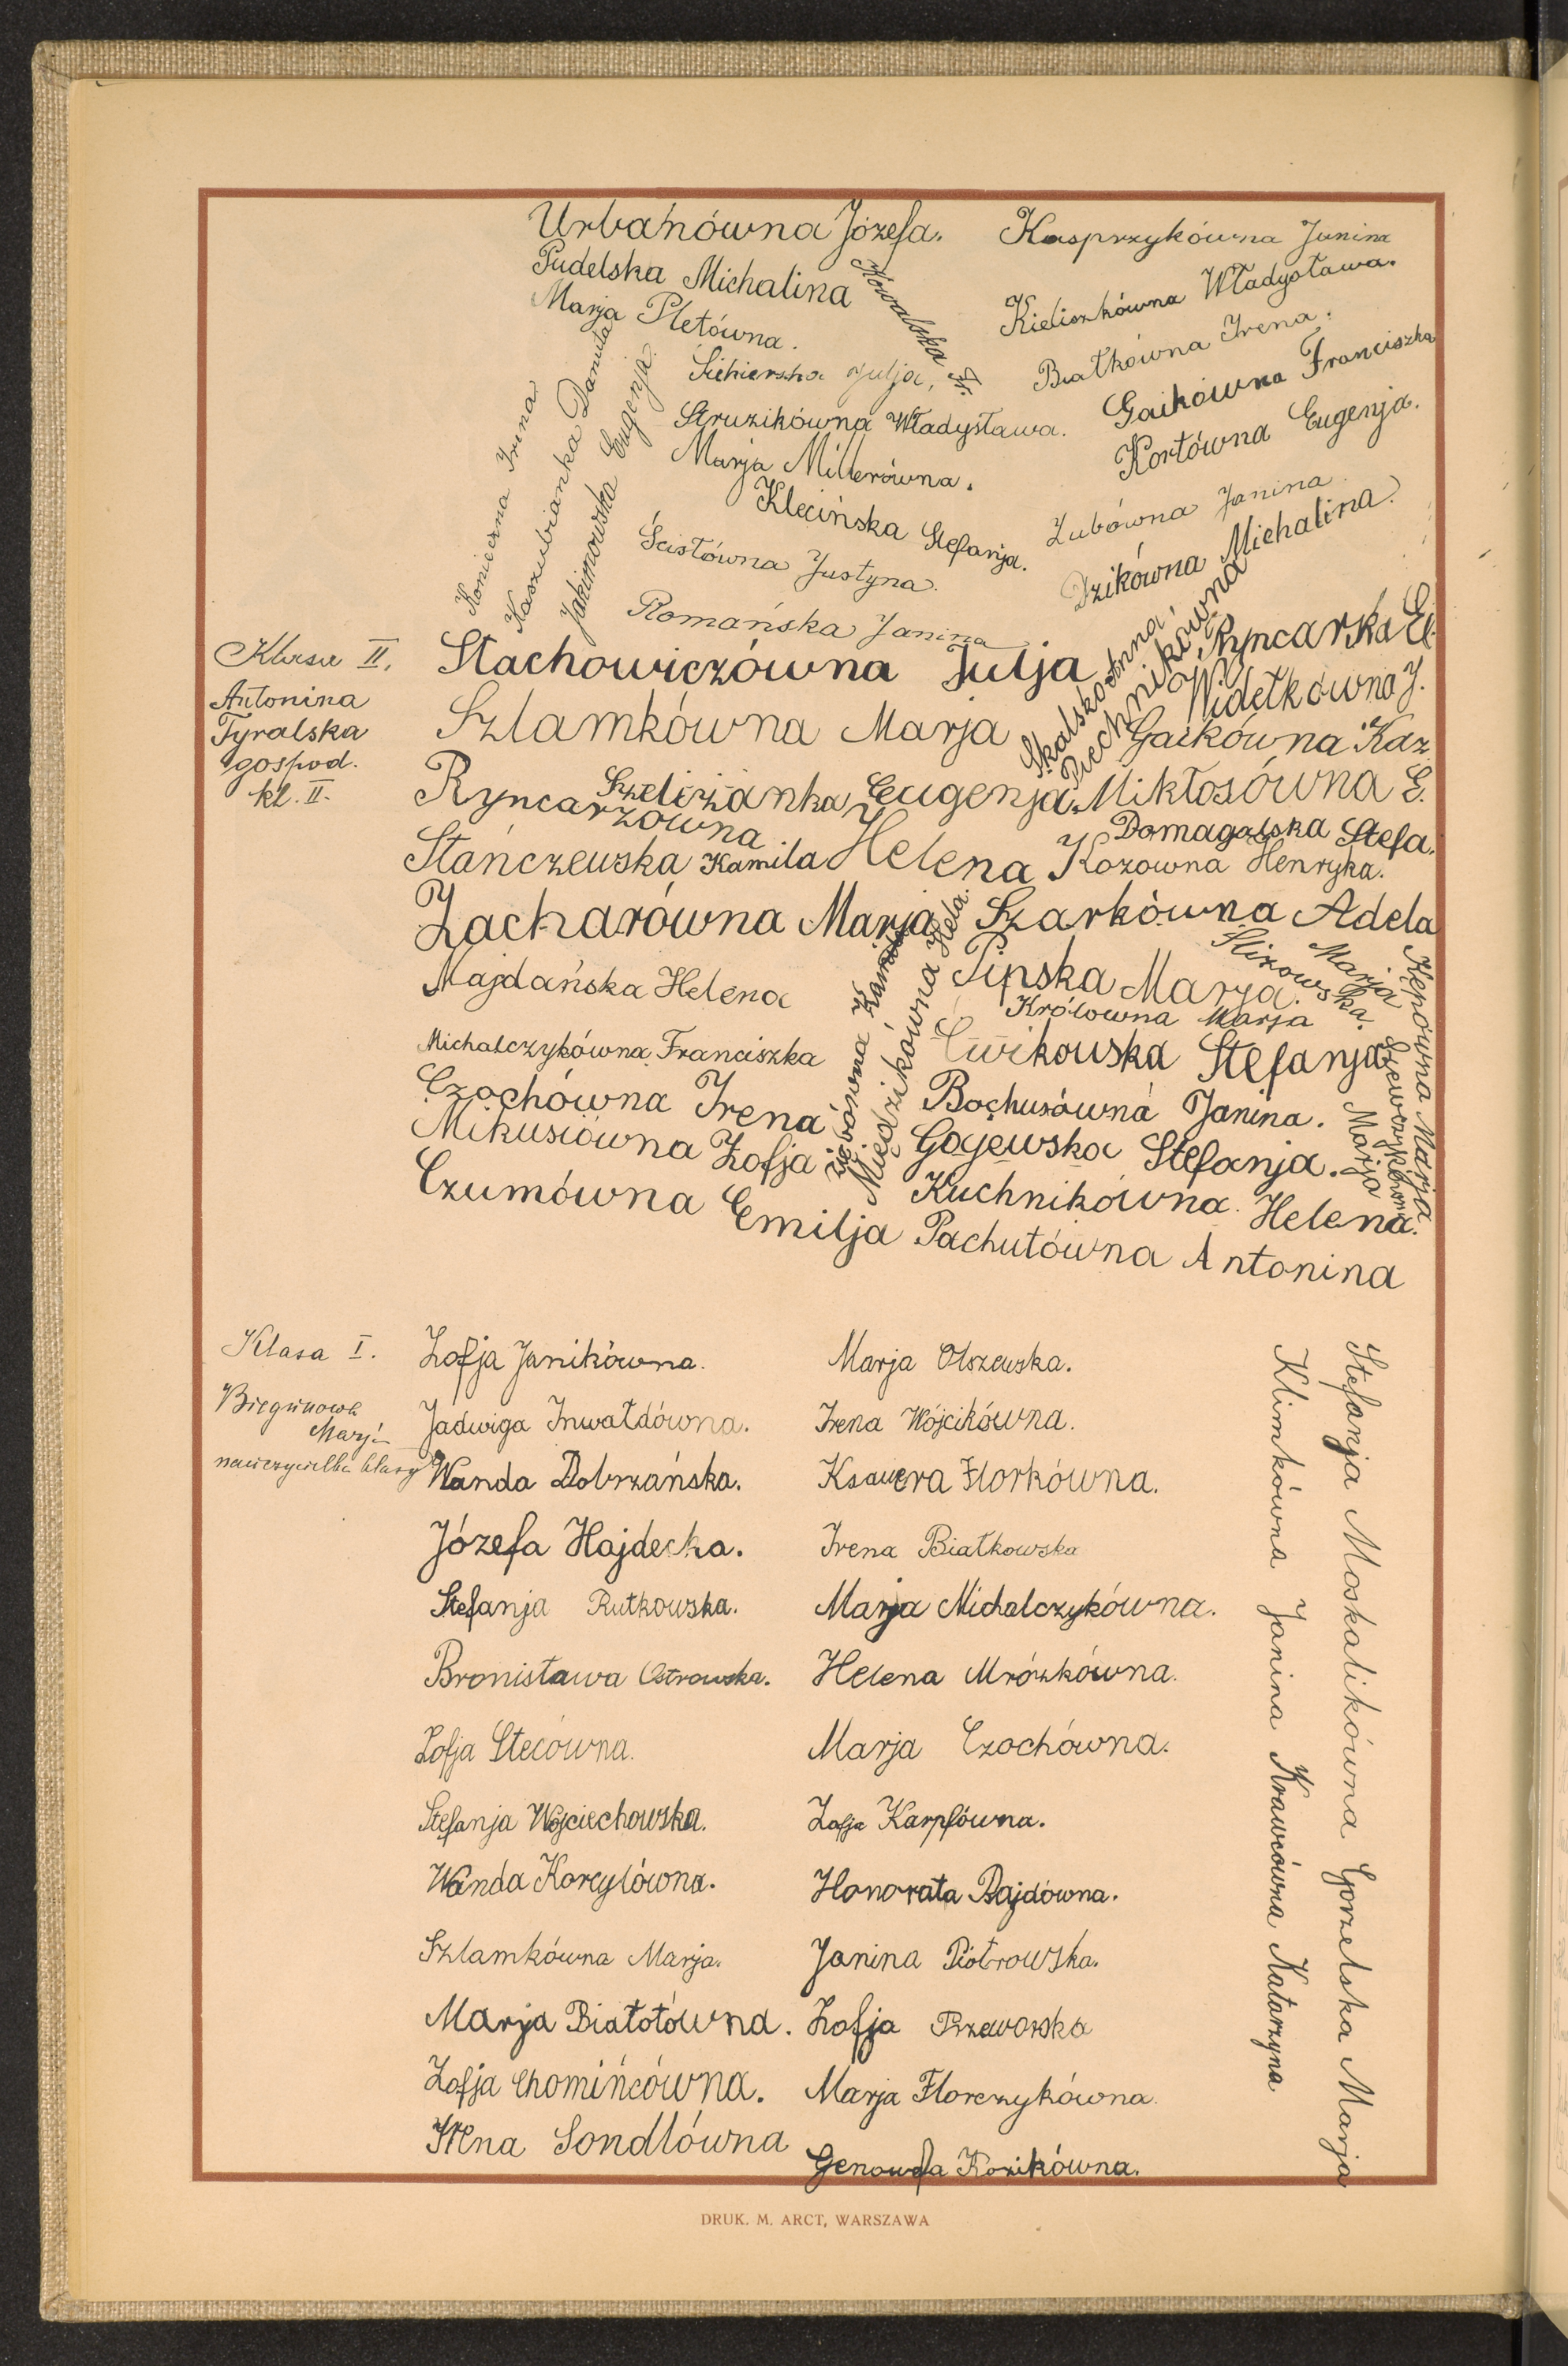 Urbanówna Józefa.
Kasprzykówna Janina
Pudelska Michalina
Kowalska Fr.
Kieliszkówna Władysława.
Marja Pletówna.
Białkówna Irena.
Siekierska Julja,
Gaikówna Franciszka
Struzikówna Władysława.
Kortówna Eugenja.
Marja Millerówna.
Klecińska Stefanja.
Zubówna Janina.
Ścisłówna Justyna.
Dzikówna Michalina.
Romańska Janina
Konieczna Irena
Kaszubianka Danuta
Jakimowska Eugenja.
Klasa II.
Antonina
Tyralska
gospod.
kl. II.
Stachowiczówna Julja
Skalska Anna
Piechnikówna
Ryncarka El.
Widełkówna J.
Szlamkówna Marja
Gaikówna Kaz.
Ryncarzówna Helena
Szeliżanka Eugenja.
Mikłosówna E.
Domagalska Stefa.
Stańczewska Kamila
Kozowna Henryka.
Zacharówna Marja
Szarkówna Adela
Majdańska Helena
Pipska Marja.
Slizowska Marja
Królowna Marja
Michalczykówna Franciszka
Ćwikowska Stefanja
Czochówna Irena
Bochusówna Janina.
Mikusiówna Zofja
Gajewska Stefanja.
Czumówna Emilja
Kuchnikówna Helena.
Pachutówna Antonina
Ziębówna Kamila
Miedzikówna Hela.
Kępówna Marja
Szewczykówna Marja
Klasa I.
Biegunowa
Marja
nauczycielka klasy
Zofja Janikówna.
Marja Olszewska.
Jadwiga Inwałdówna.
Irena Wójcikówna.
Wanda Dobrzańska.
Ksawera Florkówna.
Józefa Hajdecka.
Irena Białkowska
Stefanja Rutkowska.
Marja Michalczykówna.
Bronisława Ostrowska.
Helena Mrózkówna.
Zofja Stecówna.
Marja Czochówna.
Stefanja Wojciechowska.
Zofja Karpfówna.
Wanda Korcylówna.
Honorata Bajdówna.
Szlamkówna Marja.
Janina Piotrowska.
Marja Białołówna.
Zofja Przeworska
Zofja Chomińcówna.
Marja Florczykówna.
Irena Sondlówna
Genowefa Kozikówna.
Stefanja Moskalikówna Gorzelska Marja
Klimkówna Janina Krawcówna Katarzyna
DRUK. M. ARCT, WARSZAWA